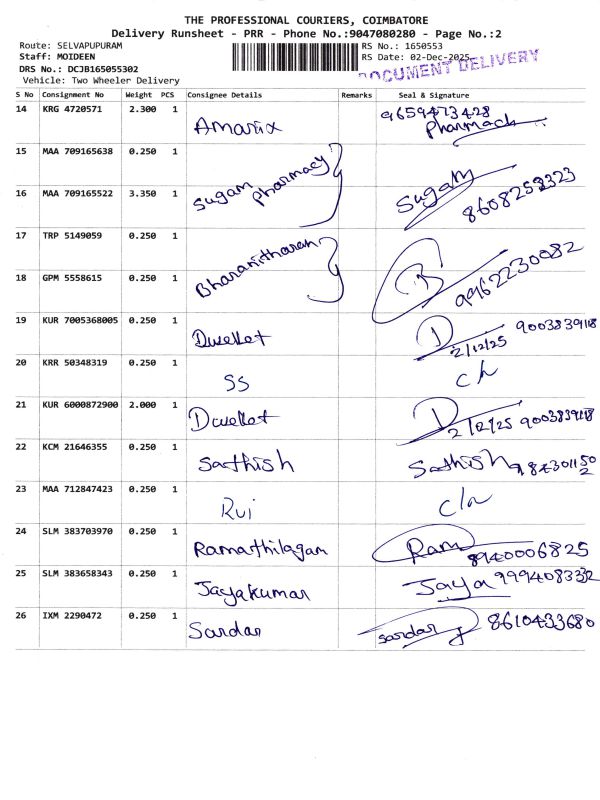 THE PROFESSIONAL COURIERS, COIMBATORE
Delivery Runsheet - PRR - Phone No.:9047080280 - Page No.:2
Route: SELVAPUPURAM
Staff: MOIDEEN
DRS No.: DCJB165055302
Vehicle: Two Wheeler Delivery
RS No.: 1650553
RS Date: 02-Dec-2025
DOCUMENT DELIVERY
S No Consignment No Weight PCS Consignee Details Remarks Seal & Signature
14 KRG 4720571 2.300 1 9659473428
Pharmach
15 MAA 709165638 0.250 1
16 MAA 709165522 3.350 1 Sugam Pharmacy Sugam 8608252323
17 TRP 5149059 0.250 1
18 GPM 5558615 0.250 1 Bharanitharan B 9962230082
19 KUR 7005368005 0.250 1 D 9003839118
2/12/25
20 KRR 50348319 0.250 1 SS
21 KUR 6000872900 2.000 1 D 2/12/25 9003839118
22 KCM 21646355 0.250 1 Sathish Sathish
23 MAA 712847423 0.250 1 Rui
24 SLM 383703970 0.250 1 Ramathilagan Ram 8940006825
25 SLM 383658343 0.250 1 Jayakumar Jaya
26 IXM 2290472 0.250 1 Sardar Sardar 8610433680